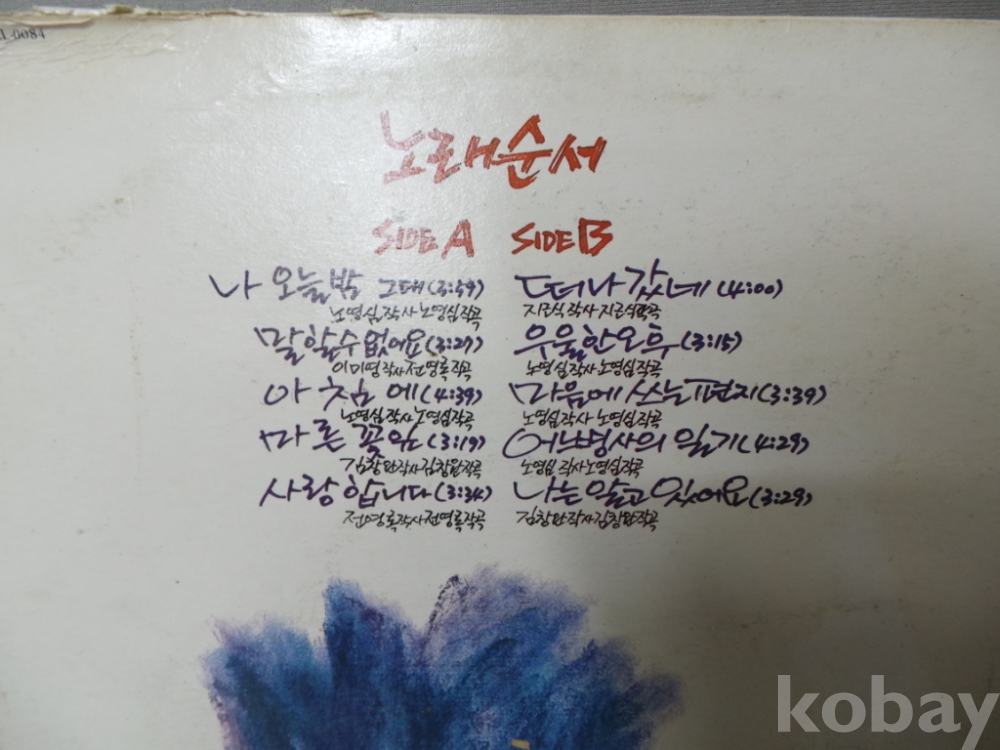 -0084
노래순서
SIDE A
나 오늘밤 그대(3:59)
노영심작사 노영심작곡
말할수없어요(3:27)
이미영작사전영록작곡
아침에(4:39)
노영심작사노영심작곡
마른 꽃잎(3:19)
김창완작사김창완작곡
사랑합니다(3:34)
전영록작사전영록작곡
SIDE B
떠나갔네(4:00)
지근식작사지근식작곡
우울한오후(3:15)
노영심작사노영심작곡
마음에 쓰는편지(3:39)
노영심작사노영심작곡
어느병사의 일기(4:29)
노영심작사노영심작곡
나는알고있어요(3:29)
김창완작사김창완작곡
kobay